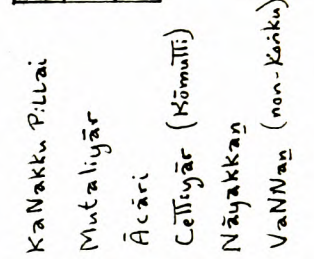 KaNakku PiLLai
Mutaliyār
Ācāri
CeTTiyār (KōmuTTi)
Nāyakkaṉ
VaNNaṉ (non-Koṅku)